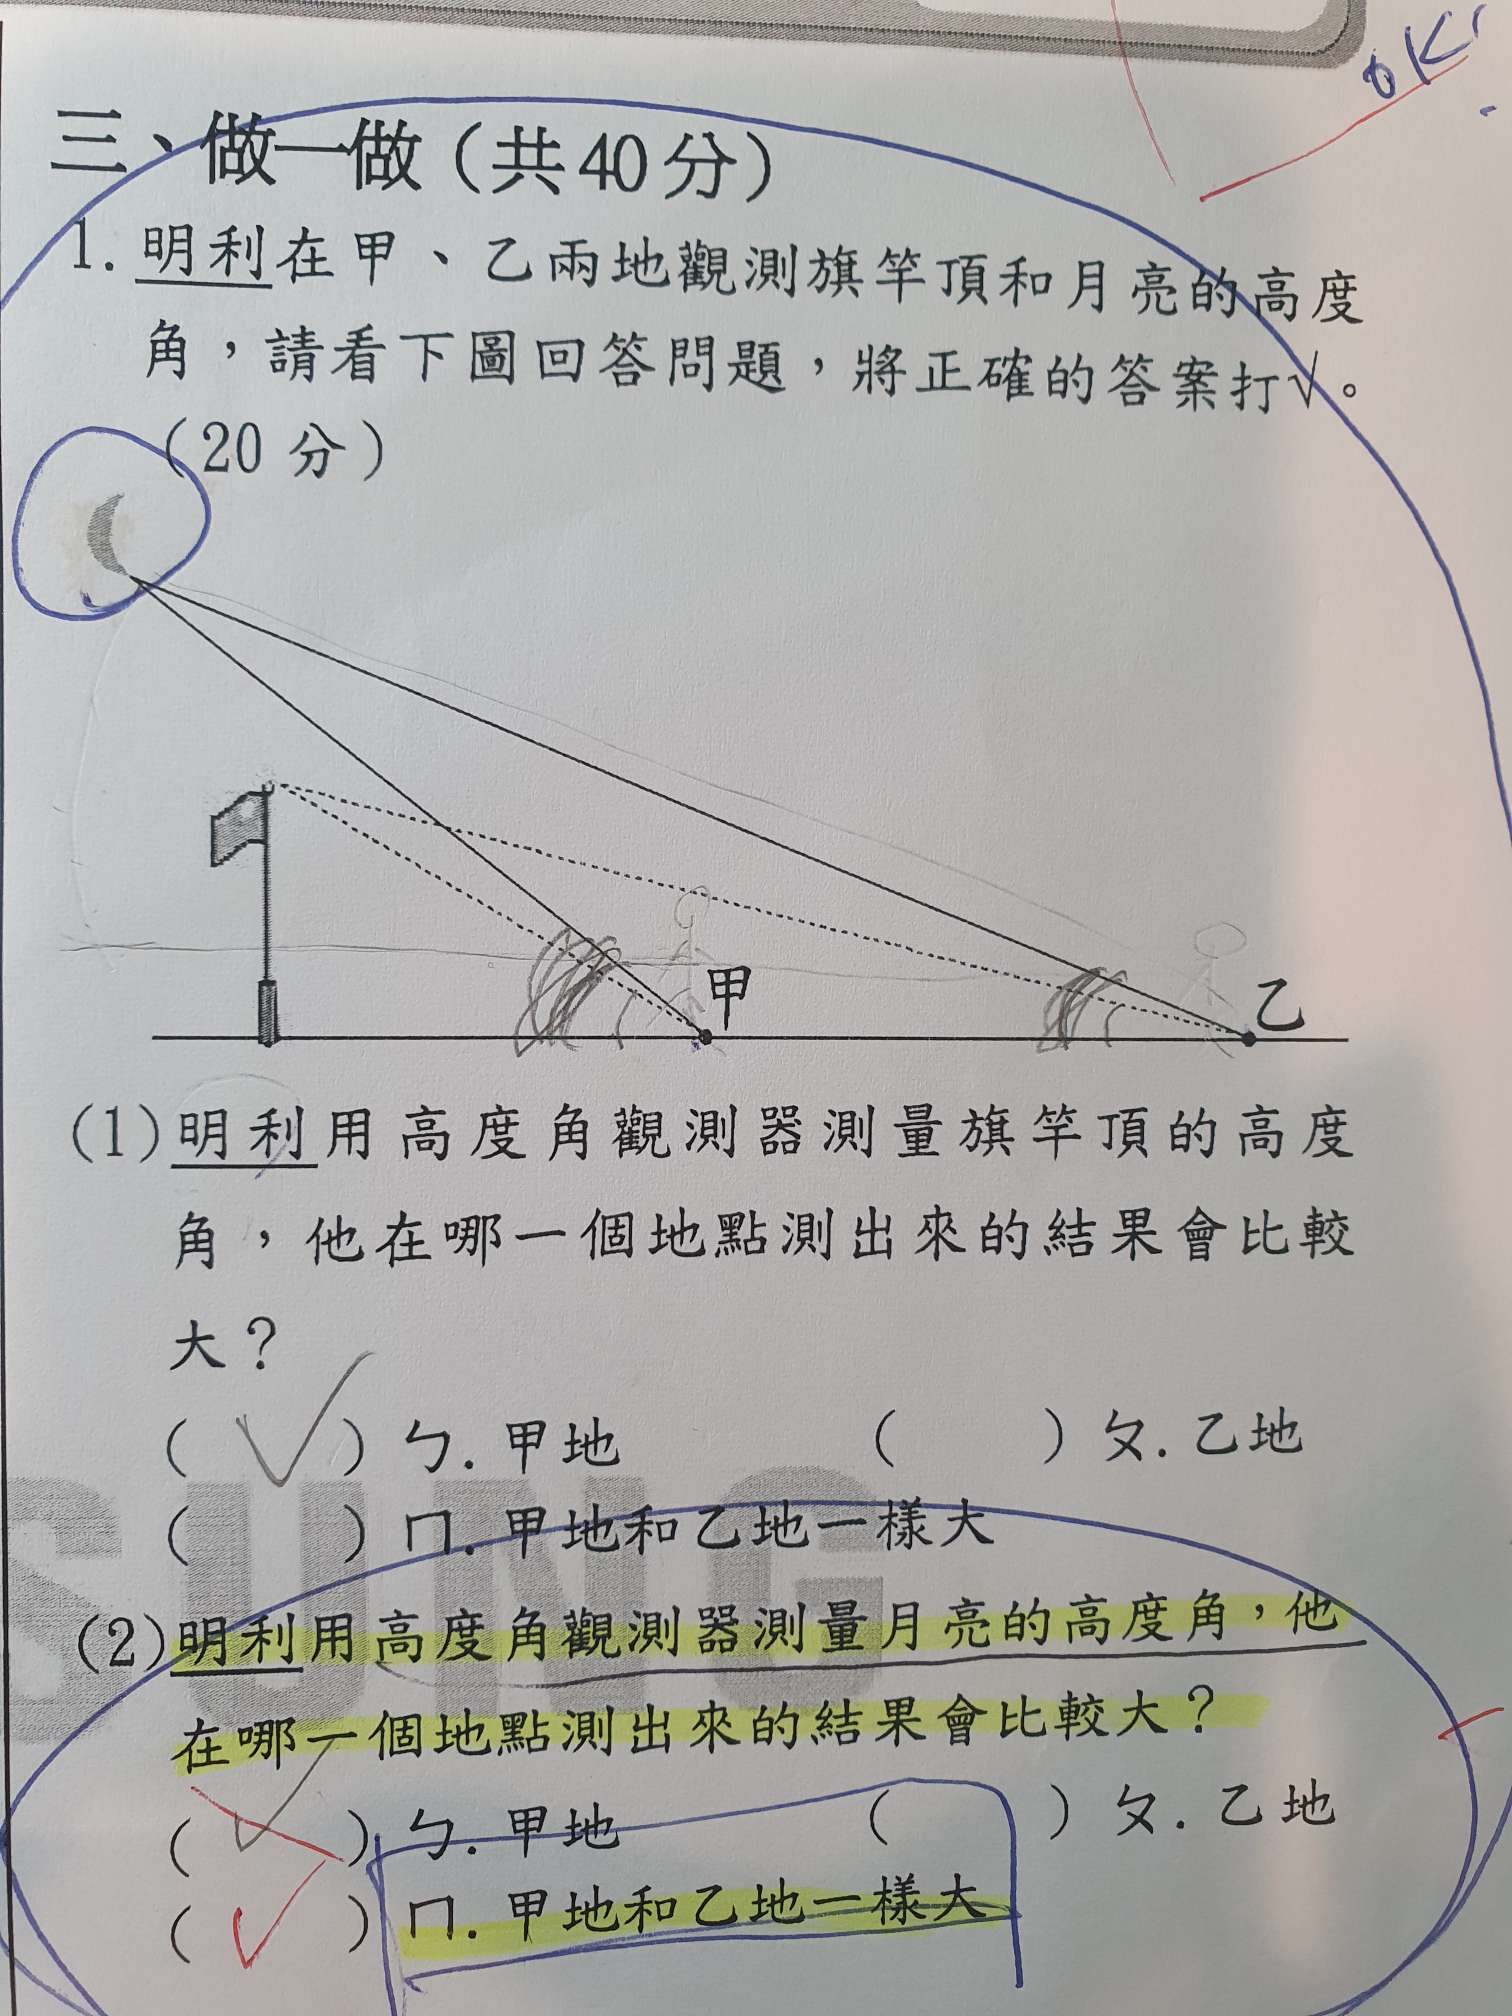 OK
三、做一做（共40分）
1. 明利在甲、乙兩地觀測旗竿頂和月亮的高度
角，請看下圖回答問題，將正確的答案打√。
（20 分）
甲
乙
(1) 明利用高度角觀測器測量旗竿頂的高度
角，他在哪一個地點測出來的結果會比較
大？
（ ✓ ）ㄅ. 甲地 （ ）ㄆ. 乙地
（ ）ㄇ. 甲地和乙地一樣大
SUNG
(2) 明利用高度角觀測器測量月亮的高度角，他
在哪一個地點測出來的結果會比較大？
（ ✓ ）ㄅ. 甲地 （ ）ㄆ. 乙地
（ ✓ ）ㄇ. 甲地和乙地一樣大